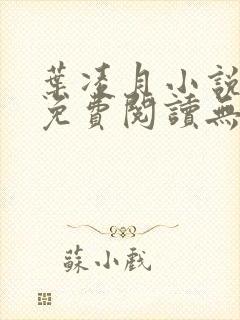 葉凌月小說
免費閱讀無
蘇小戲